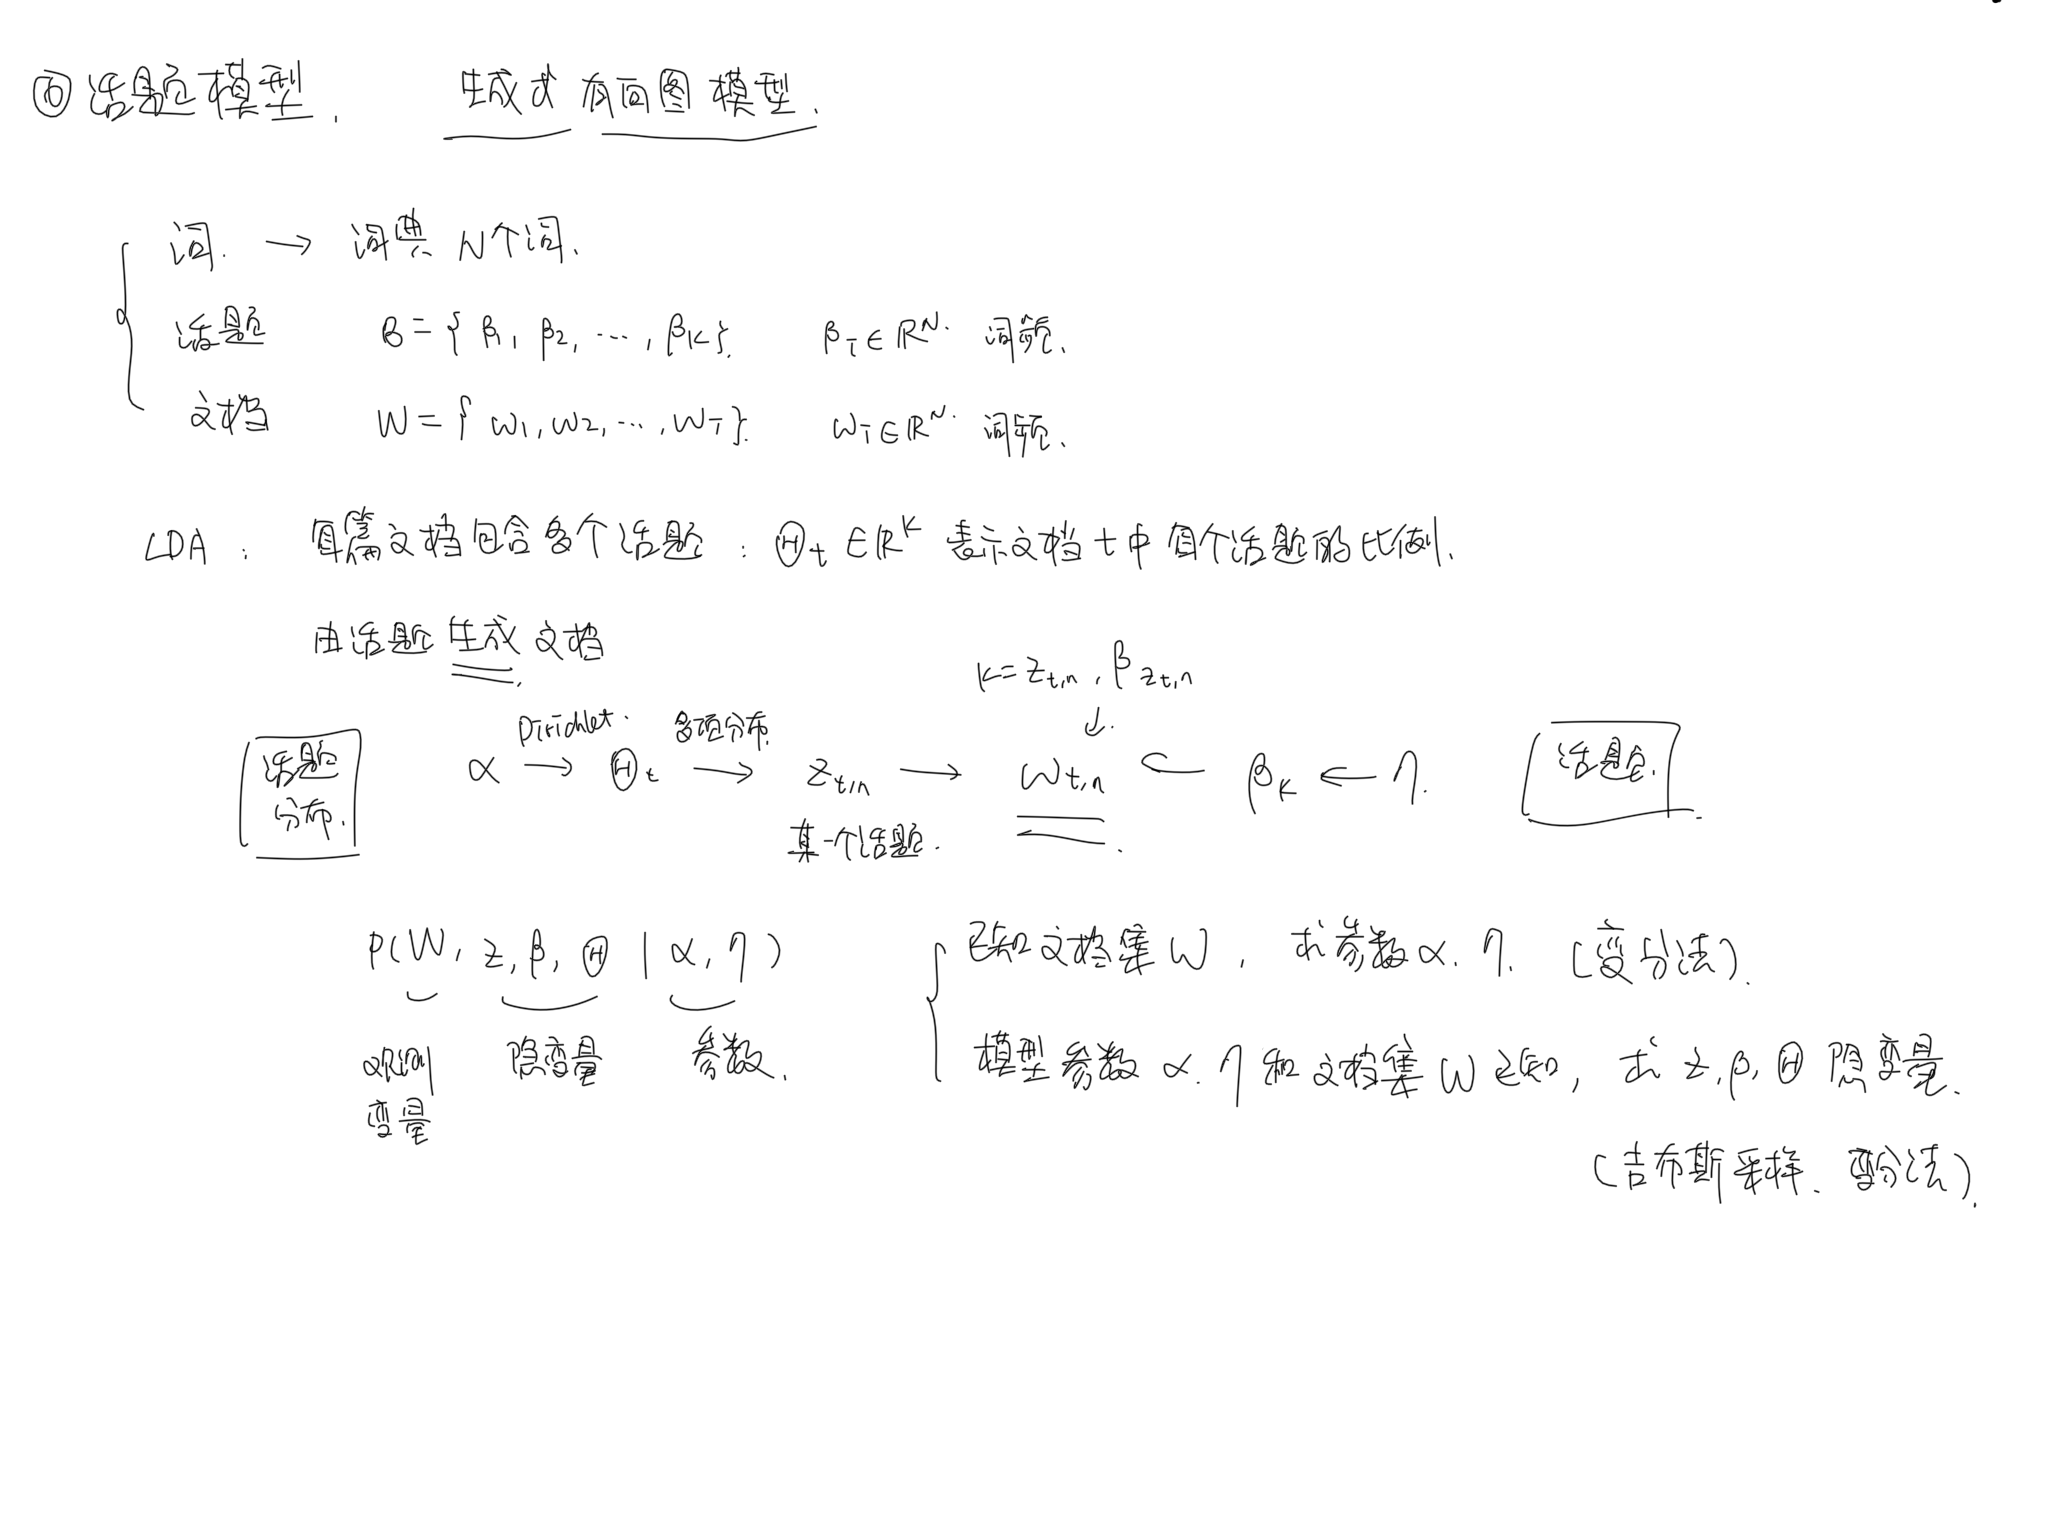 ⑥ 话题模型. 生成式 有向图模型.
词. → 词典 N个词.
话题 B = { β1, β2, ..., βK }. βi ∈ R^N. 词频.
文档 W = { w1, w2, ..., wT }. wi ∈ R^N. 词频.
LDA: 每篇文档包含多个话题: Θt ∈ R^K 表示文档 t 中每个话题的比例.
由话题 生成 文档
k = z_t,n , β_z_t,n
↓
Dirichlet. 多项分布.
话题分布. α → Θt → z_t,n → w_t,n ← βk ← η. 话题.
某一个话题.
P(W, z, β, Θ | α, η)
观测变量 隐变量 参数.
已知文档集 W, 求参数 α. η. (变分法).
模型参数 α. η 和文档集 W 已知, 求 z, β, Θ 隐变量.
(吉布斯采样. 变分法).